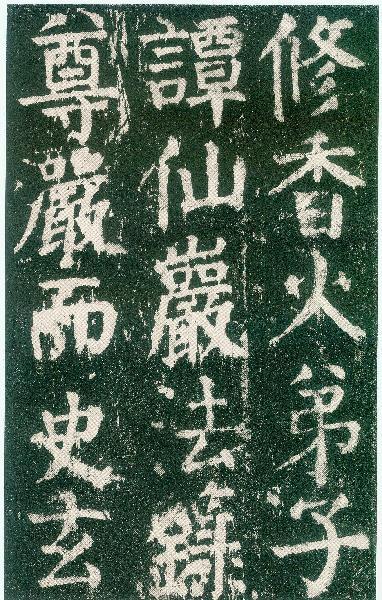 修香火弟子
譚仙巖法籙
尊嚴而史玄